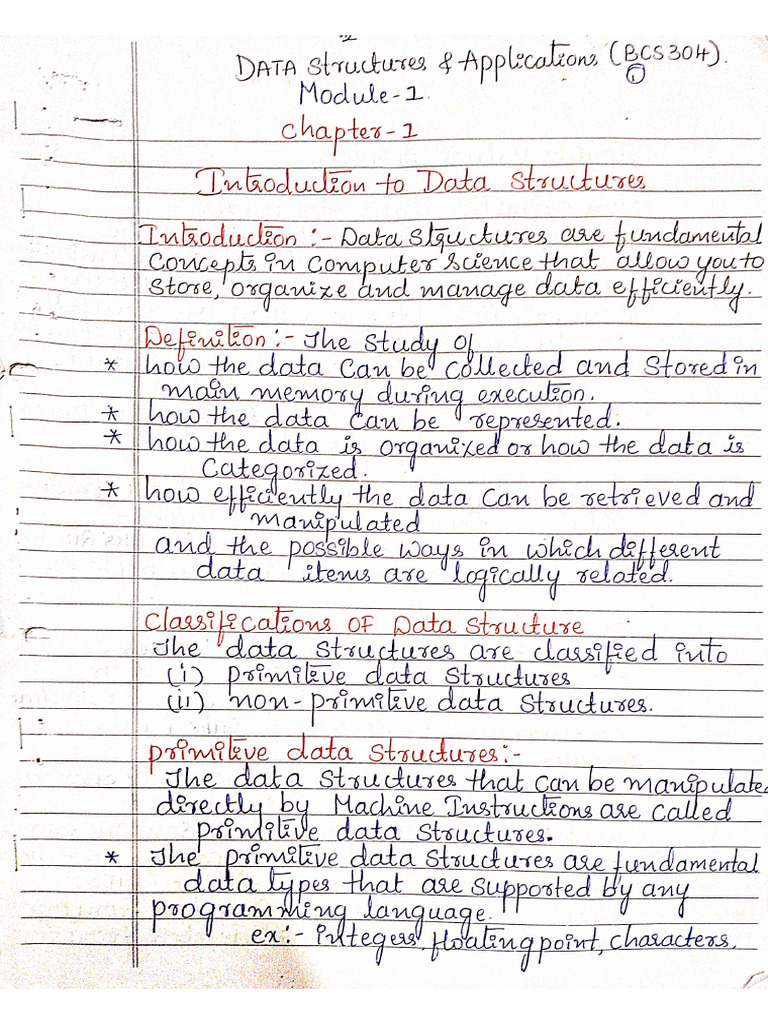 DATA Structures & Applications (BCS304).
1
Module-1.
Chapter-1
Introduction to Data Structures
Introduction :- Data Structures are fundamental
Concepts in Computer Science that allow you to
Store, organize and manage data efficiently.
Definition :- The Study of
* how the data Can be Collected and Stored in
main memory during execution.
* how the data Can be represented.
* how the data is organized or how the data is
Categorized.
* how efficiently the data Can be retrieved and
manipulated
and the possible ways in which different
data items are logically related.
Classifications OF Data Structure
The data Structures are classified into
(i) primitive data Structures
(ii) non-primitive data Structures.
primitive data Structures:-
The data Structures that Can be manipulate
directly by Machine Instructions are called
primitive data Structures.
* The primitive data Structures are fundamental
data types that are supported by any
programming language.
ex:- integers, floating point, characters.